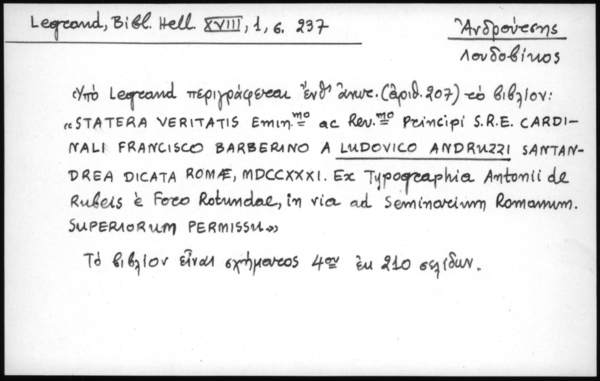 Legrand, Bibl. Hell. XVIII, 1, σ. 237
Ἀνδρούτσης
Λουδοβίκος
Ὑπὸ Legrand περιγράφεται ἔνθ' ἀνωτ. (ἀριθ. 207) τὸ βιβλίον:
«STATERA VERITATIS Emin.mo ac Rev.mo Principi S.R.E. CARDI-
NALI FRANCISCO BARBERINO A LUDOVICO ANDRUZZI SANTAN-
DREA DICATA ROMÆ, MDCCXXXI. Ex Typographia Antonii de
Rubeis è Foro Rotundae, in via ad Seminarium Romanum.
SUPERIORUM PERMISSU»
Τὸ βιβλίον εἶναι σχήματος 4ον ἐκ 210 σελίδων.